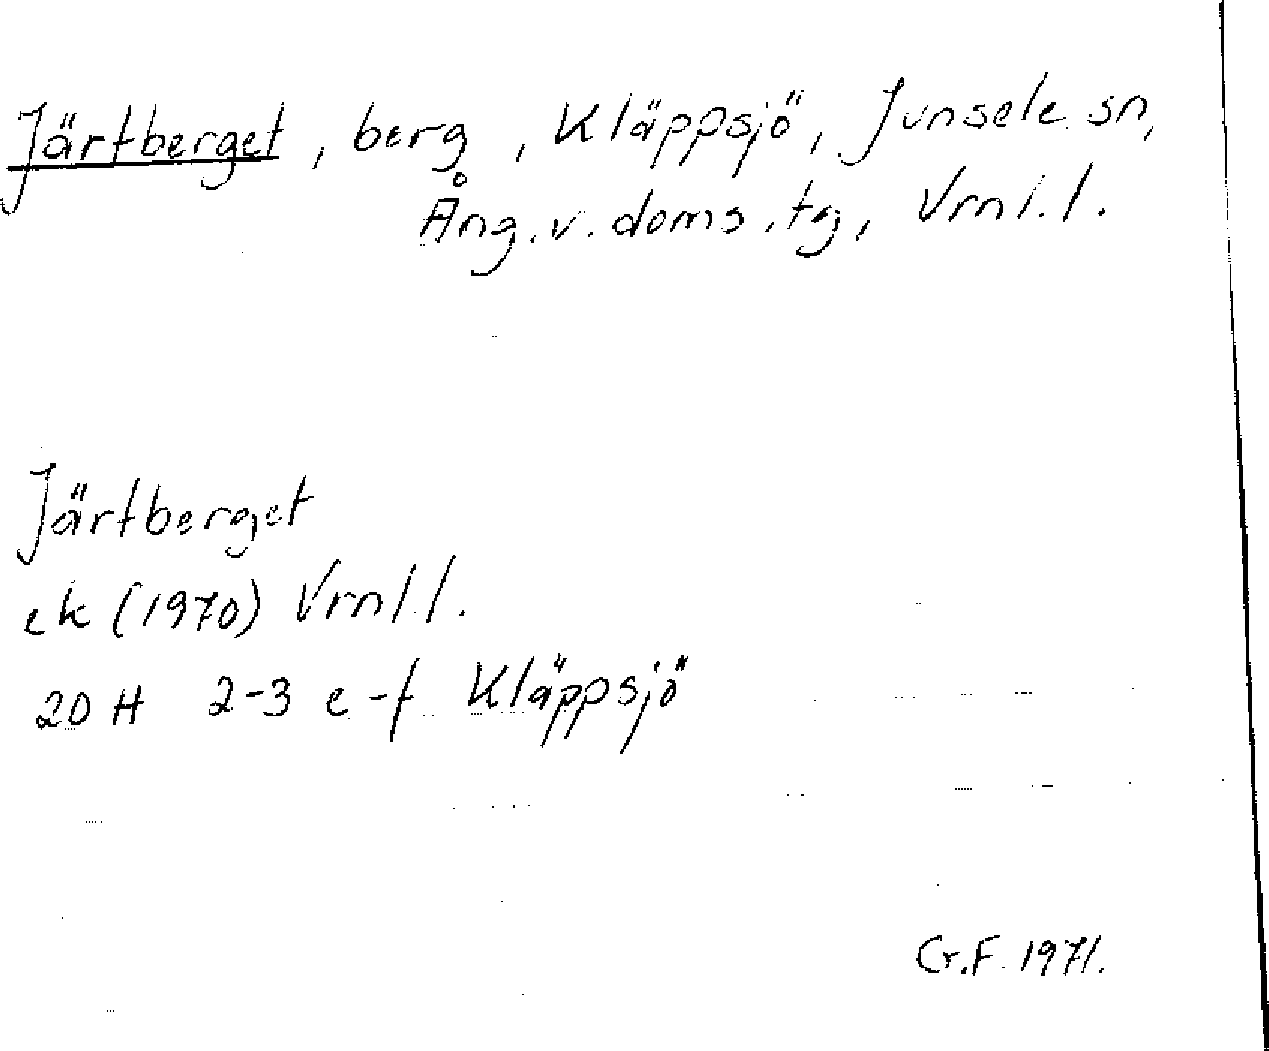 Järtberget, berg, Kläppsjö, Junsele sn,
Ång.v.doms.tg, Vrnl.l.
Järtberget
ek (1970) Vrnl.l.
20 H 2-3 e-f Kläppsjö
G.F. 1971.